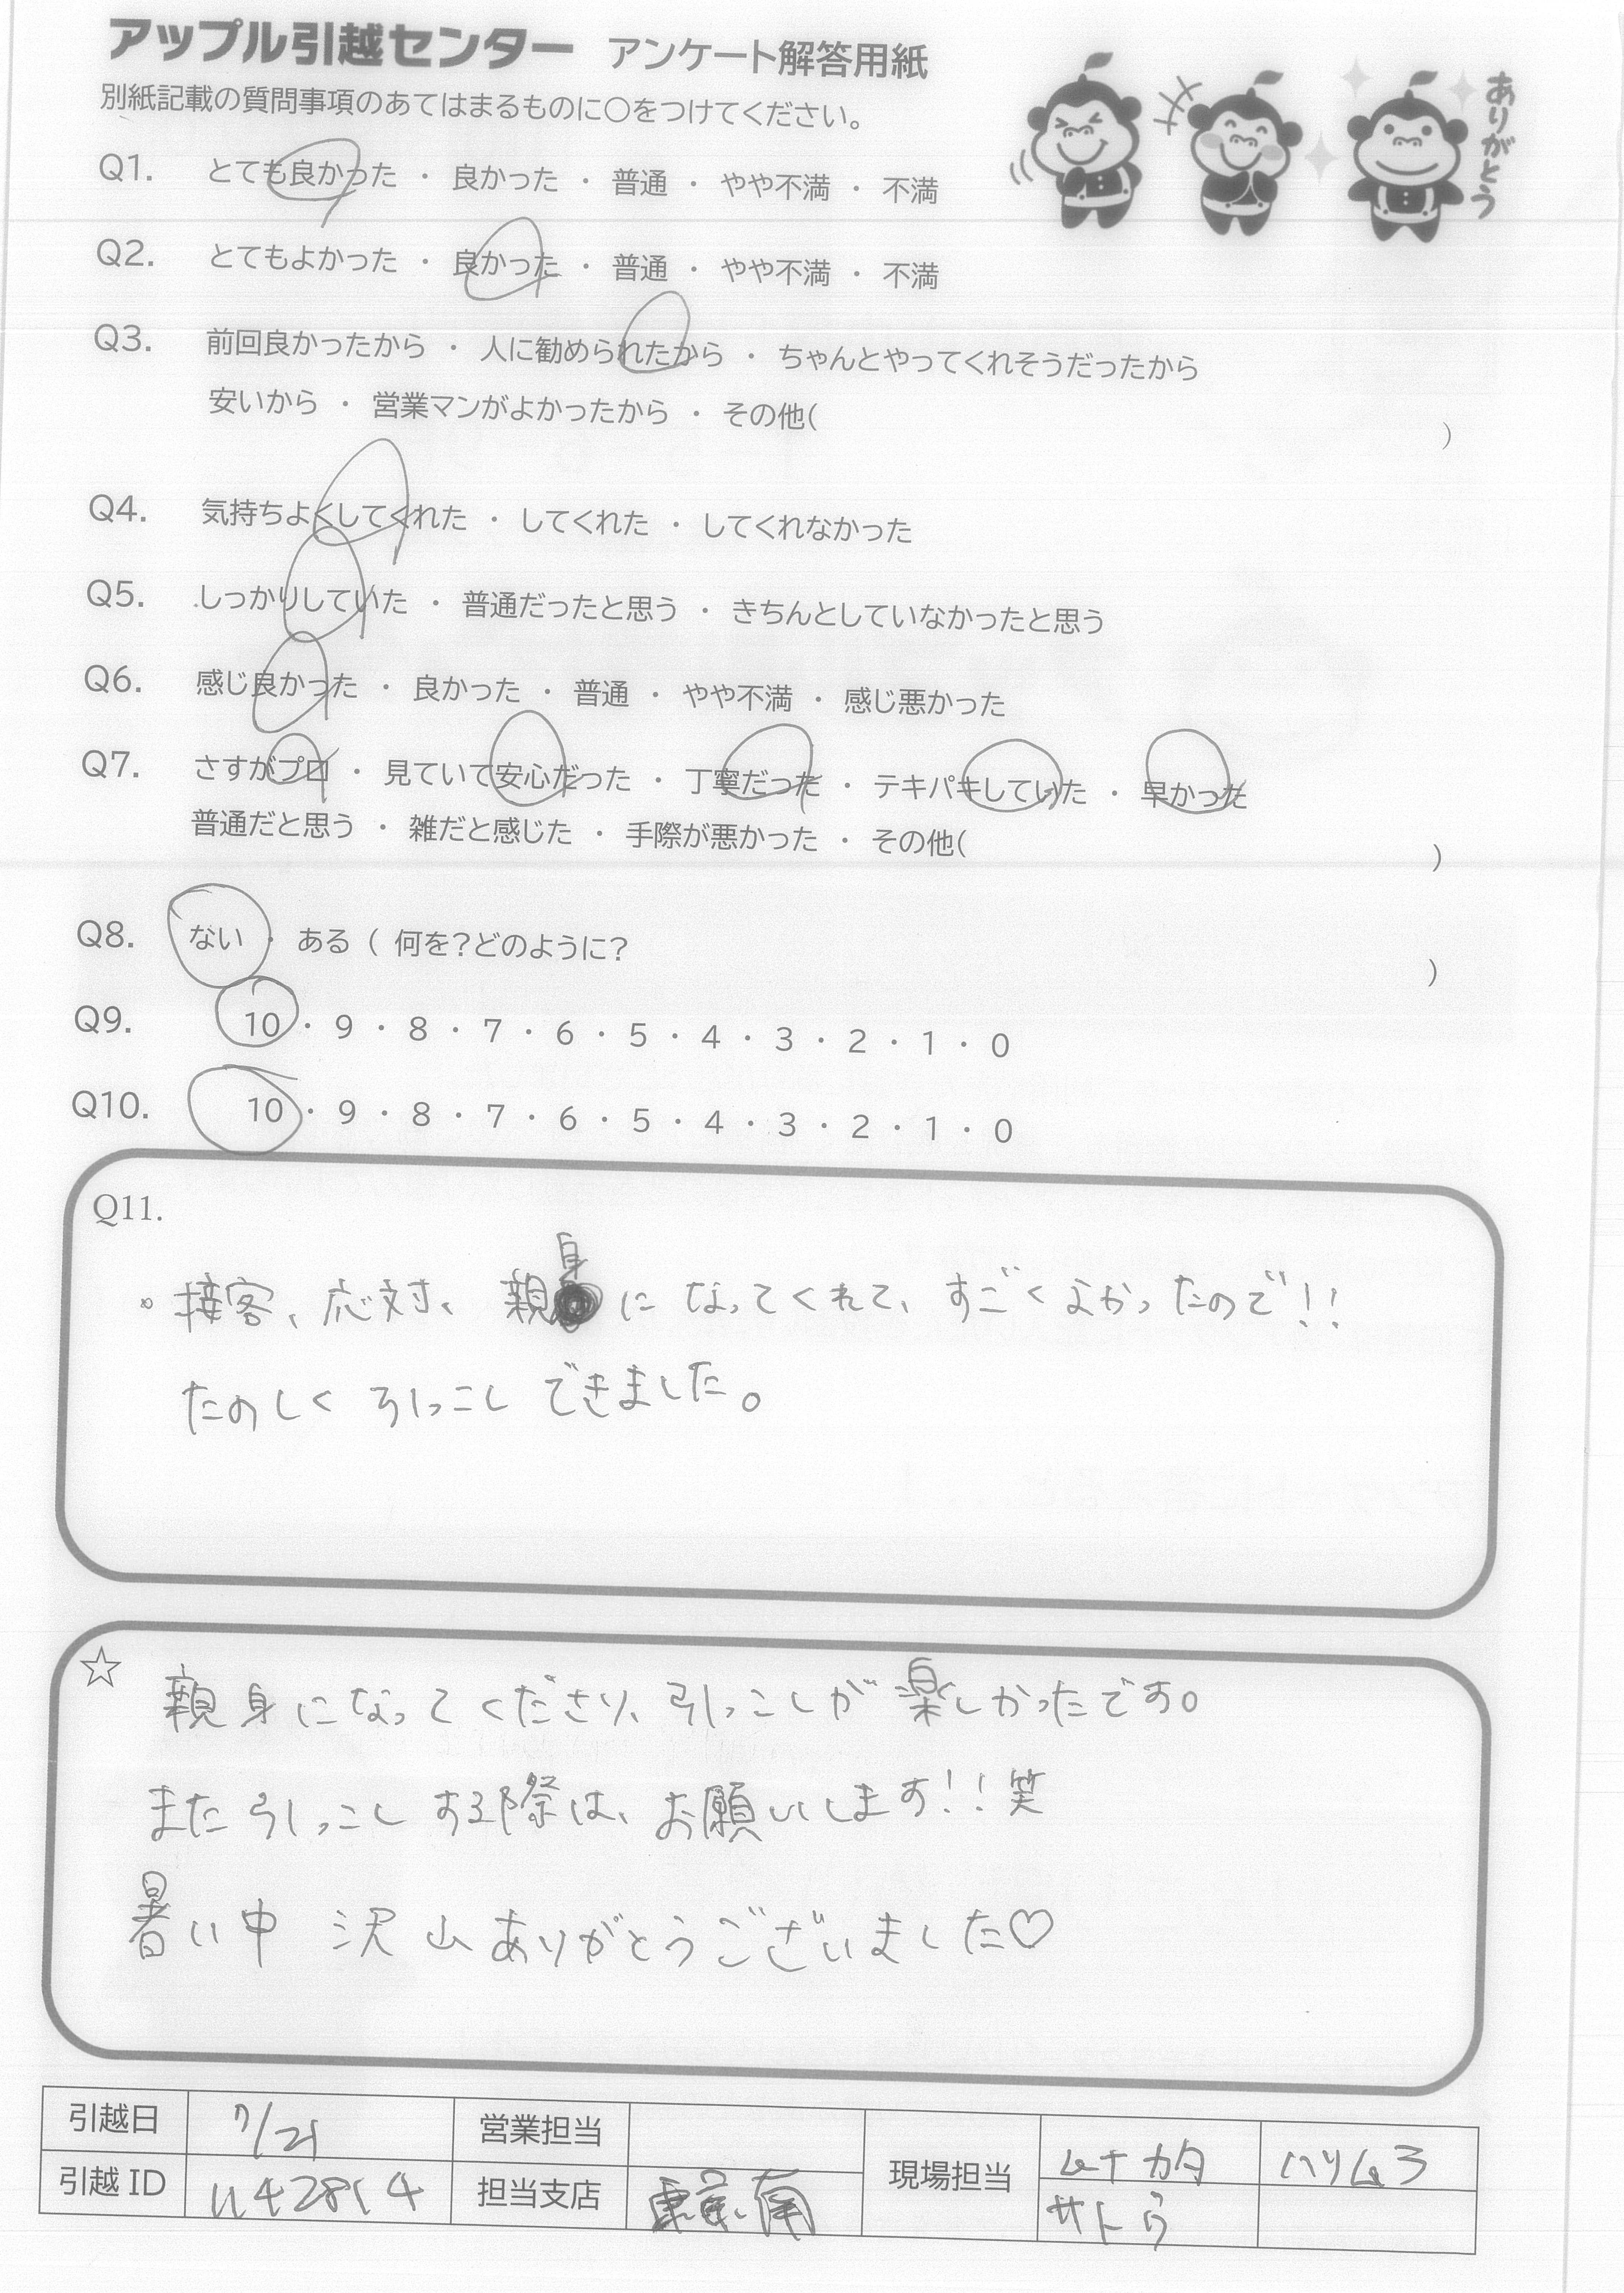 アップル引越センター アンケート解答用紙
別紙記載の質問事項のあてはまるものに○をつけてください。
ありがとう
Q1. とても良かった ・ 良かった ・ 普通 ・ やや不満 ・ 不満
Q2. とてもよかった ・ 良かった ・ 普通 ・ やや不満 ・ 不満
Q3. 前回良かったから ・ 人に勧められたから ・ ちゃんとやってくれそうだったから
安いから ・ 営業マンがよかったから ・ その他( )
Q4. 気持ちよくしてくれた ・ してくれた ・ してくれなかった
Q5. しっかりしていた ・ 普通だったと思う ・ きちんとしていなかったと思う
Q6. 感じ良かった ・ 良かった ・ 普通 ・ やや不満 ・ 感じ悪かった
Q7. さすがプロ ・ 見ていて安心だった ・ 丁寧だった ・ テキパキしていた ・ 早かった
普通だと思う ・ 雑だと感じた ・ 手際が悪かった ・ その他( )
Q8. ない ・ ある ( 何を?どのように? )
Q9. 10 ・ 9 ・ 8 ・ 7 ・ 6 ・ 5 ・ 4 ・ 3 ・ 2 ・ 1 ・ 0
Q10. 10 ・ 9 ・ 8 ・ 7 ・ 6 ・ 5 ・ 4 ・ 3 ・ 2 ・ 1 ・ 0
Q11.
。接客、応対、親身になってくれて、すごくよかったので!!
たのしく引っこしできました。
☆ 親身になってくださり、引っこしが楽しかったです。
また引っこしする際は、お願いします!!笑
暑い中 沢山ありがとうございました♡
引越日 7/21 営業担当 現場担当 ムナカタ
引越ID 担当支店 東京南 サトウ